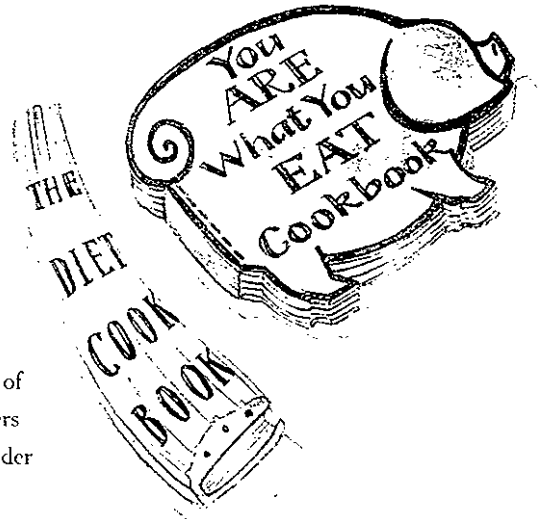 You
ARE
What You
EAT
Cookbook
THE
DIET
COOK
BOOK
of
ers
der